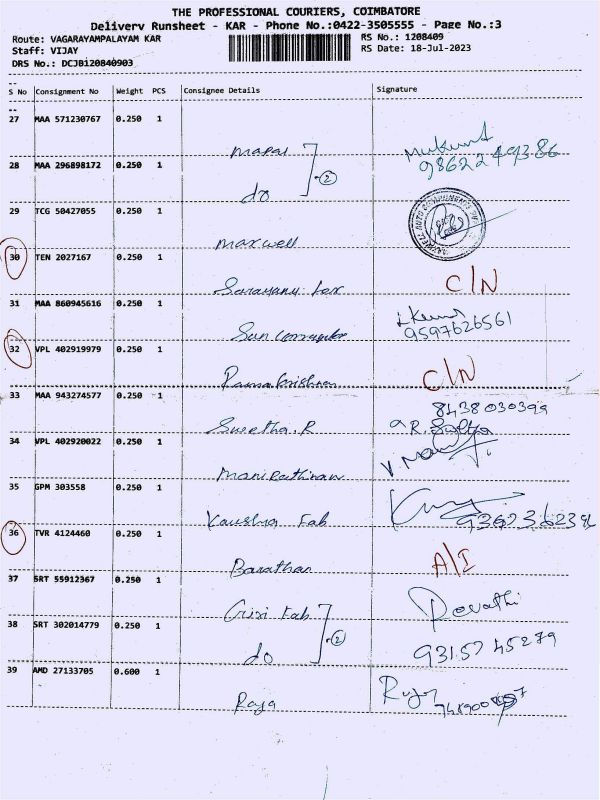 THE PROFESSIONAL COURIERS, COIMBATORE
Delivery Runsheet - KAR - Phone No.:0422-3505555 - Page No.:3
Route: VAGARAYAMPALAYAM KAR
RS No.: 1208409
Staff: VIJAY
RS Date: 18-Jul-2023
DRS No.: DCJB120840903
S No Consignment No Weight PCS Consignee Details Signature
27 MAA 571230767 0.250 1
28 MAA 296898172 0.250 1
do
2
29 TCG 50427055 0.250 1
Maxwell
30 TEN 2027167 0.250 1
C/N
31 MAA 860945616 0.250 1
Sun
9597626561
32 VPL 402919979 0.250 1
Ramakrishnan
C/N
33 MAA 943274577 0.250 1
8438030399
Swetha.R
34 VPL 402920022 0.250 1
35 GPM 303558 0.250 1
36 TVR 4124460 0.250 1
Barathan
A/I
37 SRT 55912367 0.250 1
Giri Fab
Revathi
38 SRT 302014779 0.250 1
do
2
9315745279
39 AMD 27133705 0.600 1
Raja